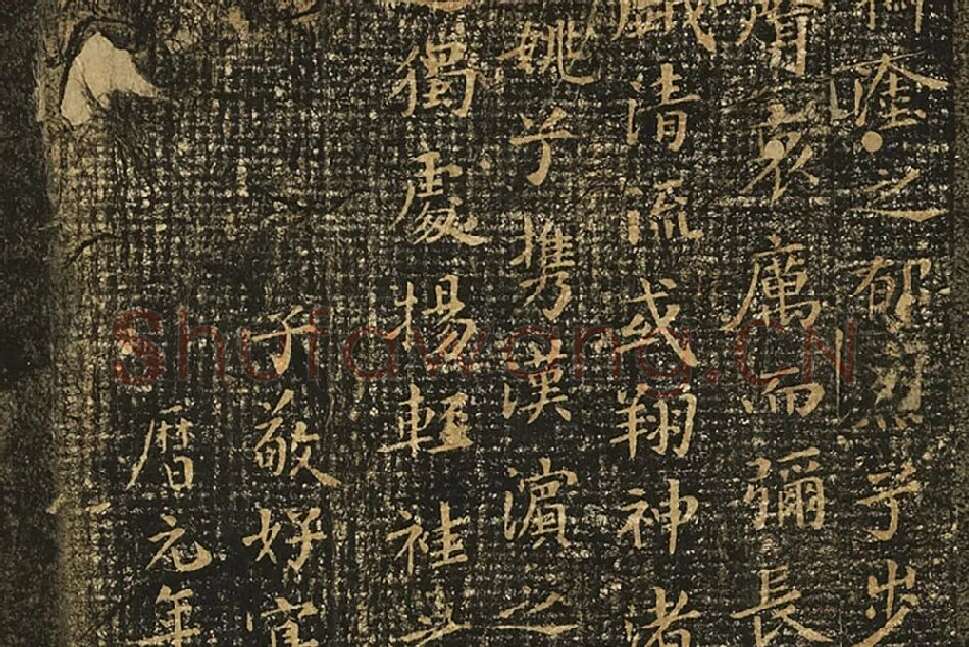 塗之郁烈兮步
哀厲而彌長
清流或翔神渚
姚兮携漢濱之
獨處揚輕袿
子敬好
曆元年
Shufawang.CN